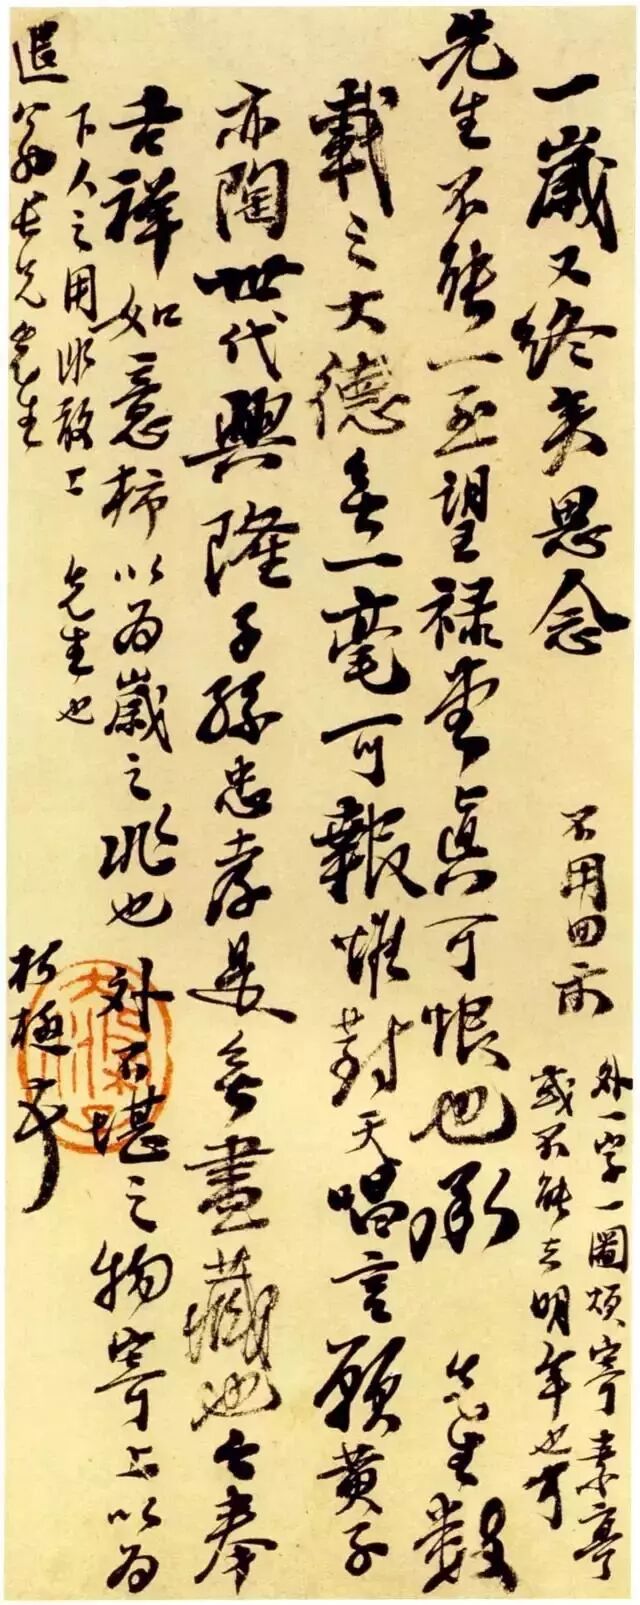 一歲又終矣思念
不用回示
外一字一圖煩寄素亭
或不能去明年也可
先生不能一至望祿堂真可恨也承 先生數
載之大德無一毫可報惟對天唱言願黃子
亦陶世代興隆子孫忠孝是無盡藏也今奉
吉祥如意柿以為歲之兆也外不堪之物寄上以為
下人之用非敢上 先生也
退翁長兄先生
朽極